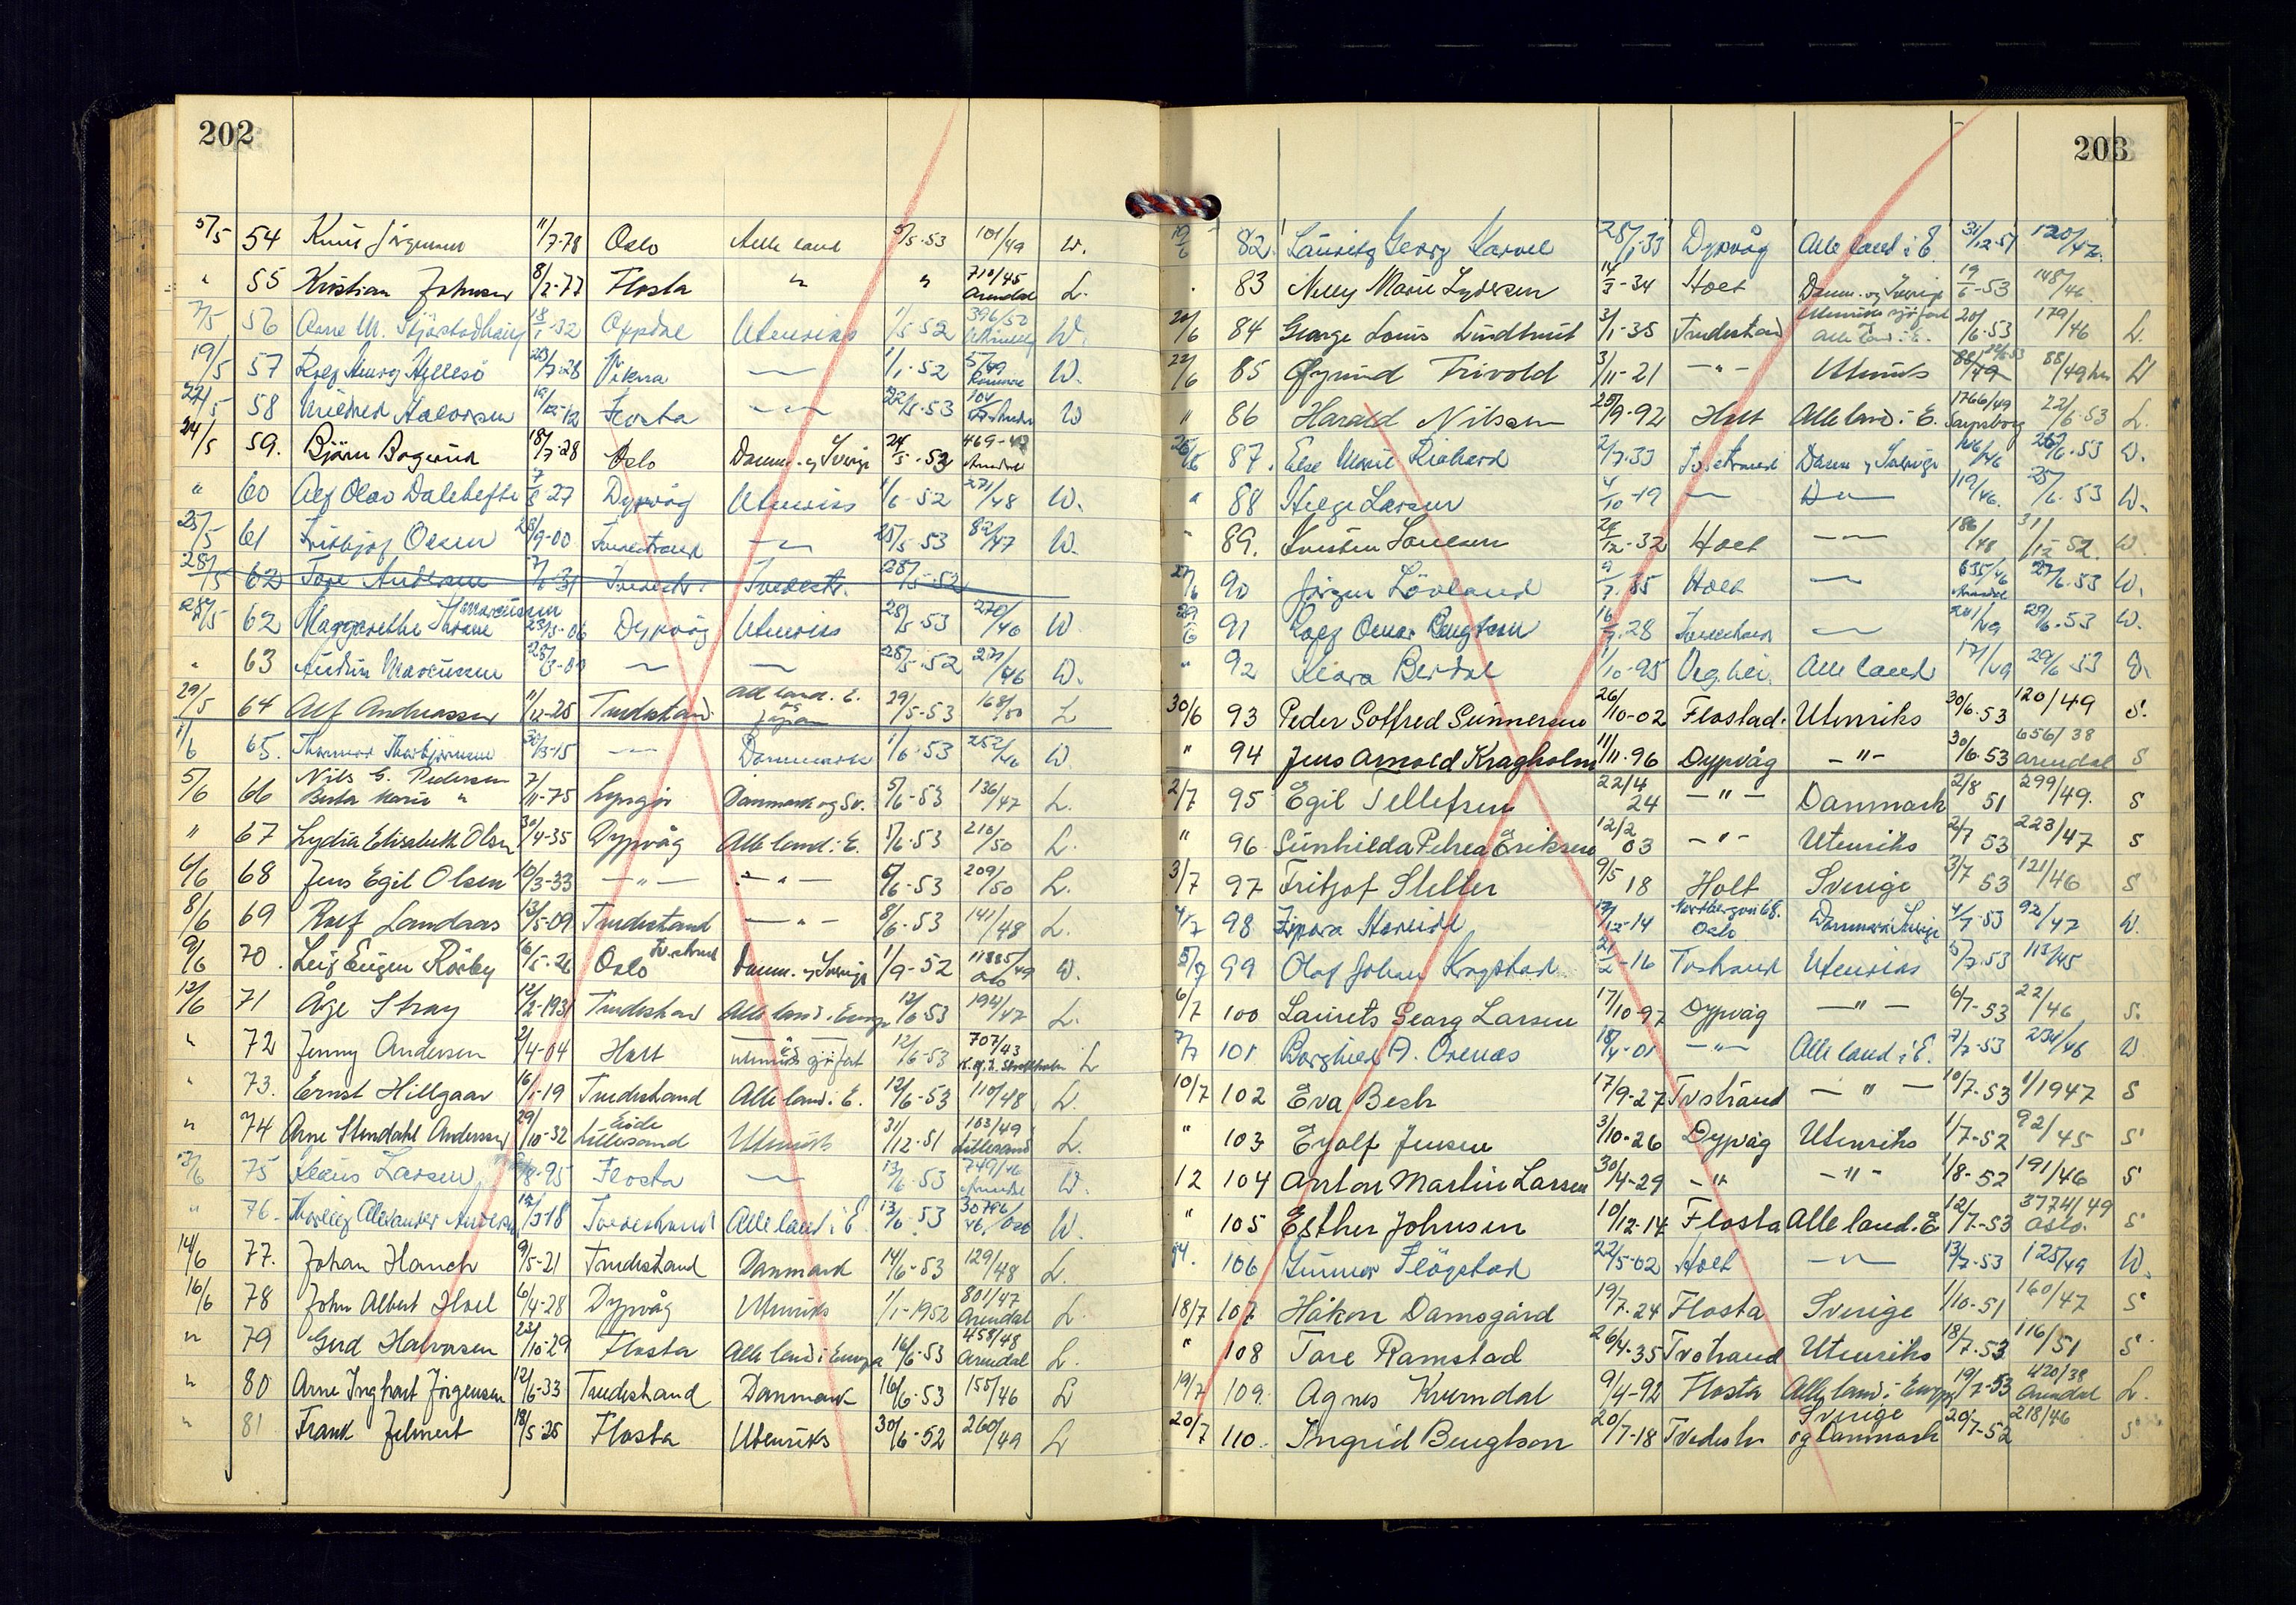 202
5/5 54 Knut Jørgensen 11/7-78 Oslo Alle land 5/5-53 101/49 W.
" 55 Kristian Johnsen 8/2-77 Flosta " " 710/45 Arendal L.
7/5 56 Arne M. 18/1-32 Oppdal Utenriks 1/5-52 396/50 W.
19/5 57 Rolf Henry Hellesö 23/7-28 Vikna — 1/1-52 5/49 W.
22/5 58 Mildred Halvorsen 19/12-12 Flosta — 22/5-53 104 W
24/5 59. Björn Bogerud 18/7-28 Oslo Danm. og Sverige 24/5-53 469-49 Arendal
" 60 Alf Olav Dalehefte 7/8-27 Dypvåg Utenriks 1/6-52 27/48 W.
25/5 61 Fritjof Olsen 28/9-00 Tvedestrand — 25/5-53 82/47 W.
28/5 62 Tore Andersen 7/6-31 Tvedestr. Tvedestr. 28/5-52
28/5 62 Marggrethe Thrane Marcussen 23/3-06 Dypvåg Utenriks 28/5-53 270/46 W.
" 63 Audun Marcussen 28/3-00 — — 28/5-52 271/46 W.
29/5 64 Alf Andreassen 11/12-25 Tvedestrand All land i E. og Japan 29/5-53 168/50 L
1/6 65. Thorbjørnsen 30/3-15 — Danmark 1/6-53 252/46 W.
5/6 66 Nils G. Pedersen Berta Marie " 7/11-75 Lyngör Danmark og Sv. 5/6-53 136/47 L.
" 67 Lydia Elisabeth Olsen 30/4-35 Dypvåg Alle land i E. 5/6-53 210/50 L.
6/6 68 Jens Egil Olsen 10/3-33 — " — — " — 6/6-53 209/50 L.
8/6 69 Rolf Landaas 13/5-09 Tvedestrand — " — 8/6-53 141/48 L.
9/6 70. Leif Eugen Rörby 16/5-26 Oslo Tv.strand Danm. og Sverige 1/9-52 11885/49 Oslo W.
12/6 71 Åge Stray 12/2-1931 Tvedestrand Alle land i Europa 12/6-53 194/47 L.
" 72 Jenny Andersen 2/4-04 Holt utenriks sjöfart 12/6-53 707/43 L
" 73. Ernst Hillgaar 16/1-19 Tvedestrand Alle land i E. 12/6-53 110/48 L.
" 74 Arne Stendahl Anderssen 29/10-32 Eide Lillesand Utenriks 31/12-51 103/49 Lillesand L.
13/6 75 Klaus Larsen /8-95 Flosta — 13/6-53 749/46 Arendal W.
" 76. Thorleif Alexander Andersen 12/3-18 Tvedestrand Alle land i E 13/6-53 30796/46, Oslo W.
14/6 77. Johan Hauch 9/5-21 Tvedestrand Danmark 14/6-53 129/48 L.
16/6 78 John Albert Hoel 6/4-28 Dypvåg Utenriks 1/1-1952 801/47 Arendal L.
" 79 Gerd Halvorsen 23/10-29 Flosta Alle land i Europa 16/6-53 458/48 Arendal L.
" 80 Arne Inghart Jörgensen 12/6-33 Tvedestrand Danmark 16/6-53 155/46 L
" 81 Frank 18/5-25 Flosta Utenriks 30/6-52 260/49 L
203
19/6 82. Lauritz Georg Karvel 28/1-33 Dypvåg Alle land i E. 31/12-51 120/47.
" 83 Nelly Marie Lydersen 14/3-34 Holt Danm. og Sverige 19/6-53 148/46
20/6 84 George Louis Lindtveit 3/1-35 Tvedestrand Utenriks sjöfart og alle land i E. 20/6-53 179/46 L.
22/6 85 Øyvind Trivold 3/11-21 — " — Utenriks 88/49 22/6-53 88/49 L
" 86 Harald Nilsen 25/9-92 Holt Alle land i E. 1766/49 Sarpsborg 22/6-53 L.
26/6 87. Else Marie Richard 2/7-33 Tvedestrand Danm. og Sverige 166/46 26/6-53 W.
" 88 Helge Larsen 4/10-19 — D — 119/46. 25/6-53 W.
" 89. 24/12-32 Holt — 186/48 31/12-52. W.
27/6 90 Jörgen Lövland 9/7-35 Holt — 635/46 Arendal 27/6-53 W.
29/6 91 Rolf Oskar Bengtson 16/7-28 Tvedestrand — 201/49 29/6-53 W.
" 92 Klara Berdal 1/10-95 Veg.hei. Alle land 171/49 29/6-53 W.
30/6 93 Peder Gotfred Gunnersen 26/10-02 Flostad. Utenriks 30/6-53 120/49 S.
" 94 Jens Arnold Kragholm 11/11-96 Dypvåg — " — 30/6-53 656/38 Arendal S
2/7 95 Egil Tellefsen 22/4 24 — " — Danmark 2/8 51 299/49. S
" 96 Gunhilda Petrea Eriksen 12/2 03 — " — Utenriks 2/7 53 223/47 S
3/7 97 Fritjof Sletter 9/5 18 Holt Sverige 3/7 53 121/46 S
4/7 98 Zipora Hareide 17/12-14 Oslo Danmark Sverige 4/7-53 92/47 W.
5/7 99 Olaf Johan Kragstad 21/2-16 Tvstrand Utenriks 5/7-53 113/45
6/7 100 Laurets Georg Larsen 17/10-97 Dypvåg — " — 6/7-53 22/46 S.
7/7 101 Borghild A. Örenäs 18/4-01 — " — Alle land i E. 7/7-53 234/46 W
10/7 102 Eva Besk 17/9-27 Tvstrand — " — 10/7-53 1/1947 S
" 103 Eyolf Jensen 3/10-26 Dypvåg Utenriks 1/7-52 92/45 S
12 104 Anton Martin Larsen 30/4-29 — " — — " — 1/8-52 191/46 S
" 105 Esther Johnsen 10/12-14 Flosta Alle land i E 12/7-53 3774/49 Oslo. S
14. 106 Gunnar Flögstad 22/5-02 Holt — 13/7-53 125/49 W.
18/7 107 Håkon Damsgård 19/7-24 Flosta Sverige 1/10-51 160/47 S
" 108 Tore Ramstad 26/4-35 Tvstrand Utenriks 18/7-53 116/51 S
19/7 109. Agnes Kverndal 9/4-92 Flosta Alle land i Europa 19/7-53 420/38 Arendal L.
20/7 110. Ingrid Bengtson 20/7-18 Tvedestr Sverige og Danmark 20/7-52 218/46 S